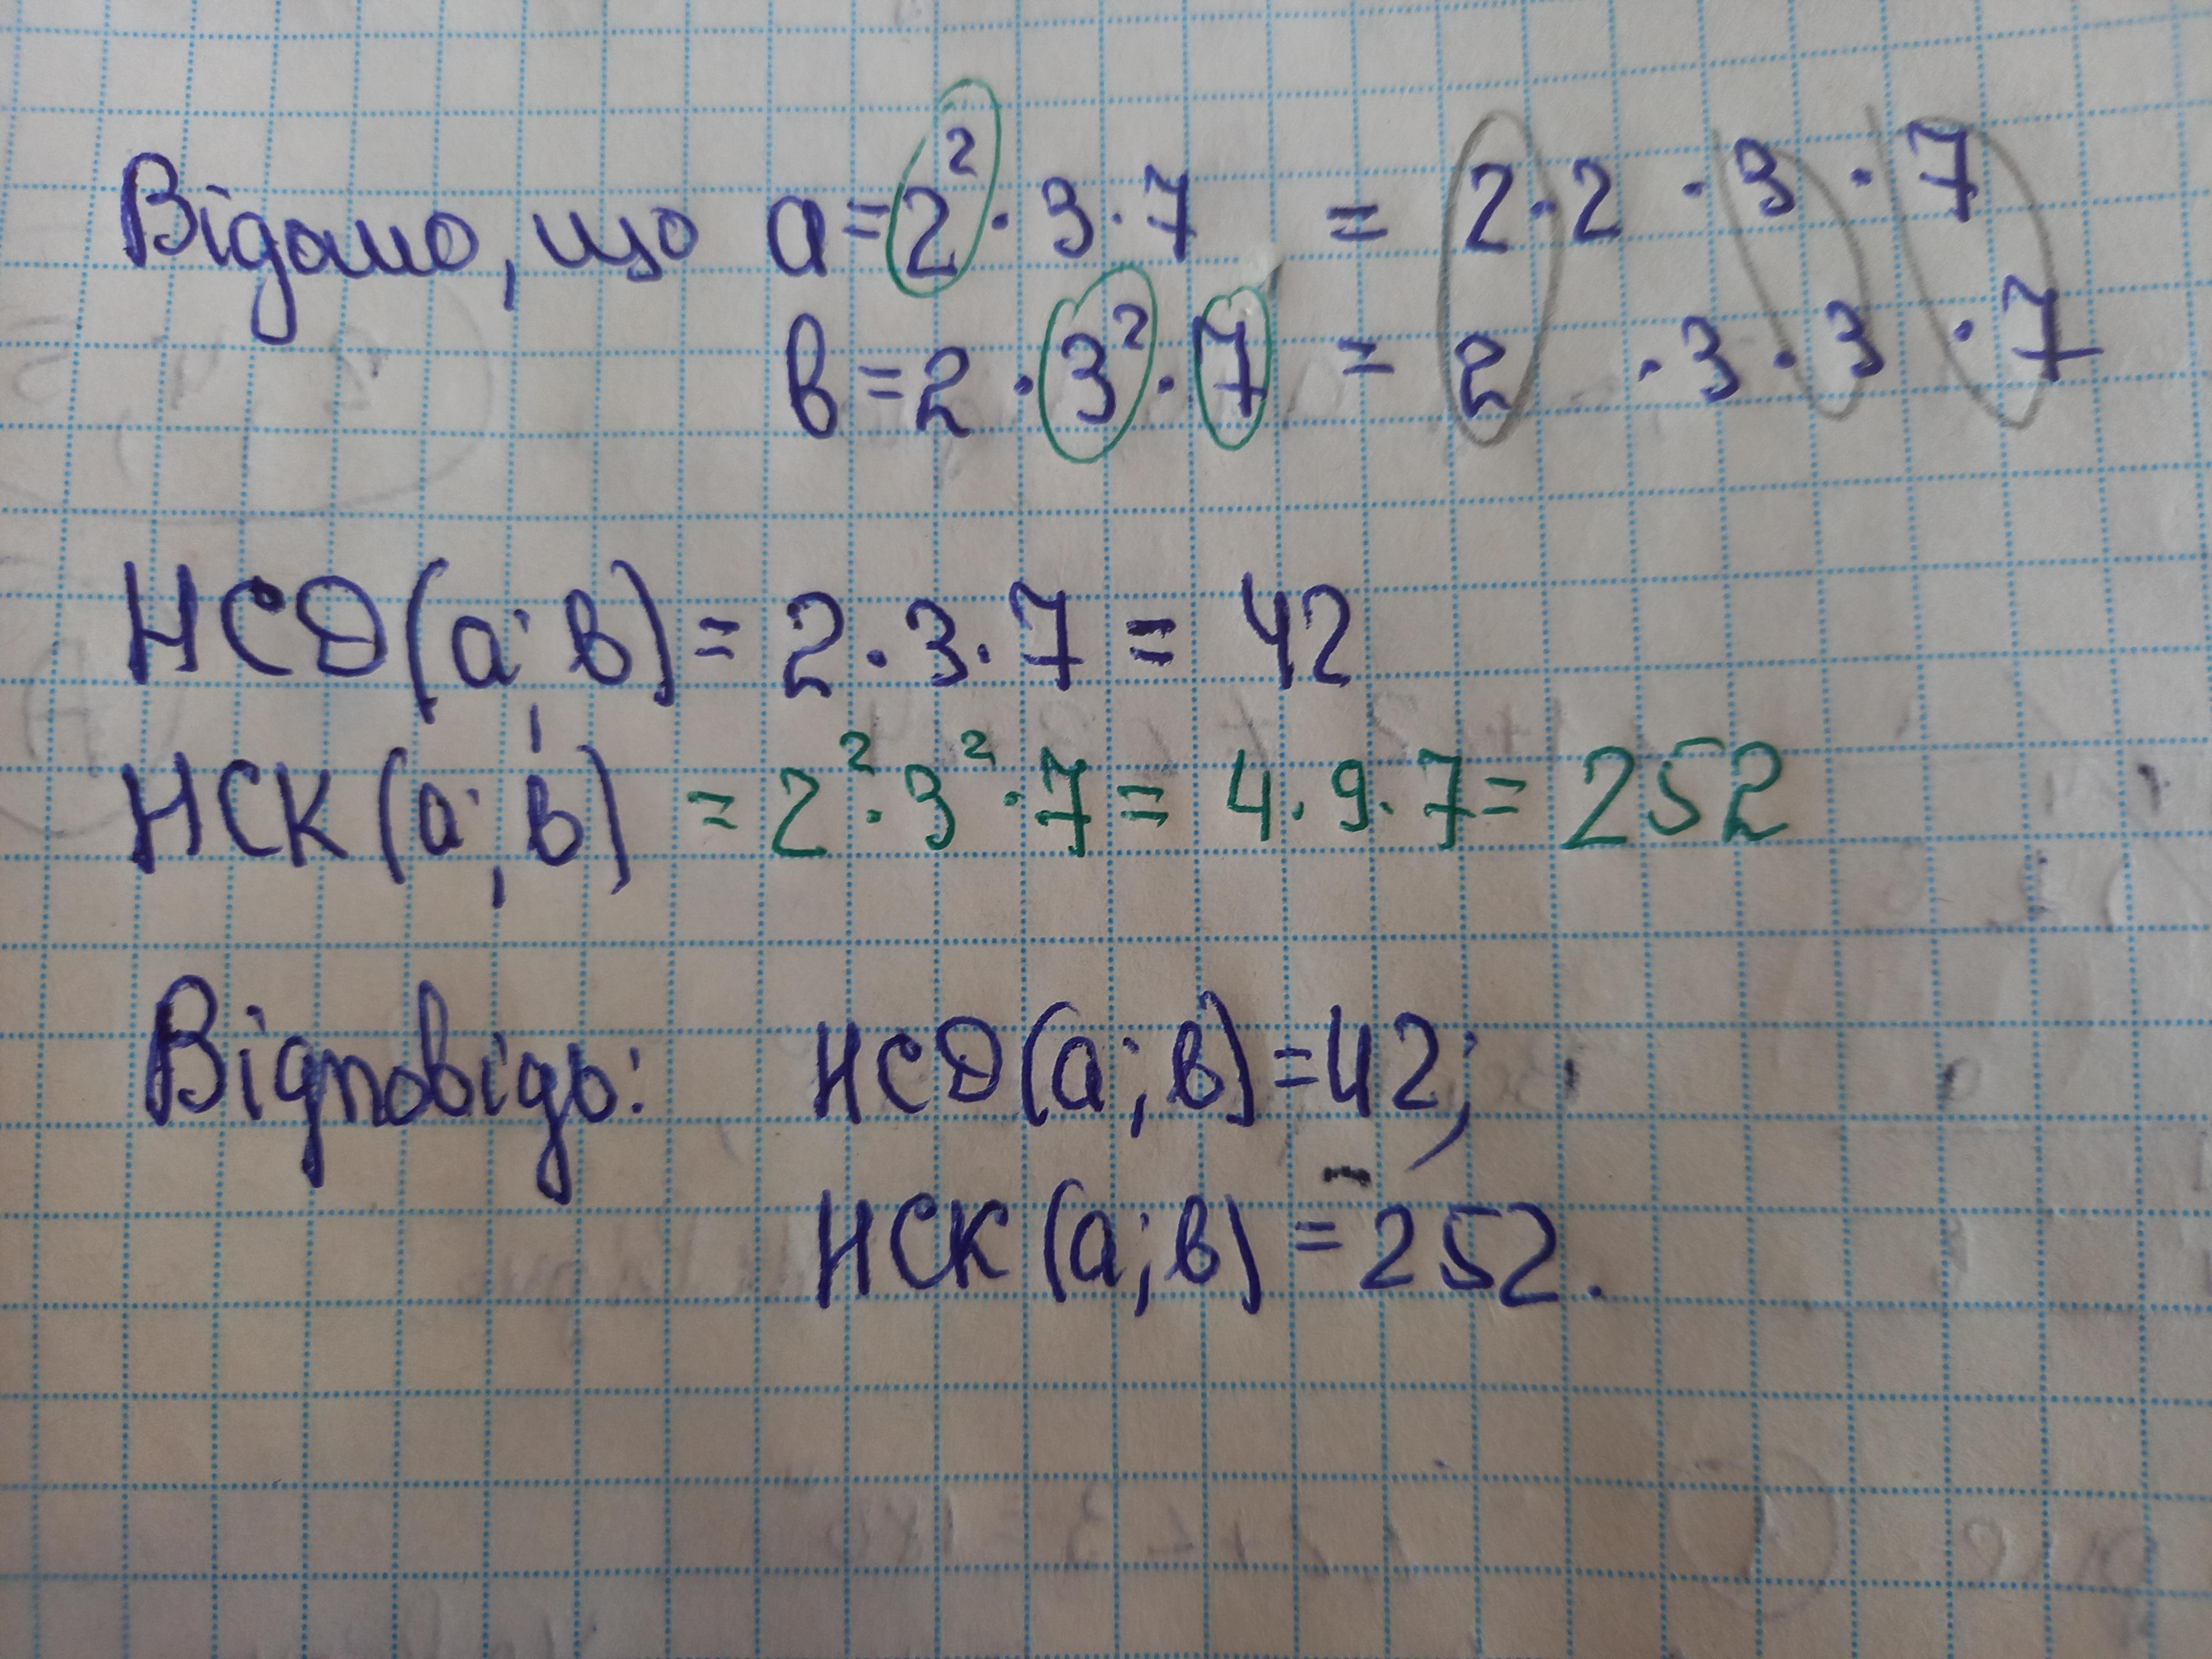 Відомо, що a=2²·3·7 = 2·2·3·7
b=2·3²·7 = 2·3·3·7
НСД(a;b)=2·3·7=42
НСК(a;b)=2²·3²·7=4·9·7=252
Відповідь: НСД(a;b)=42;
НСК(a;b)=252.